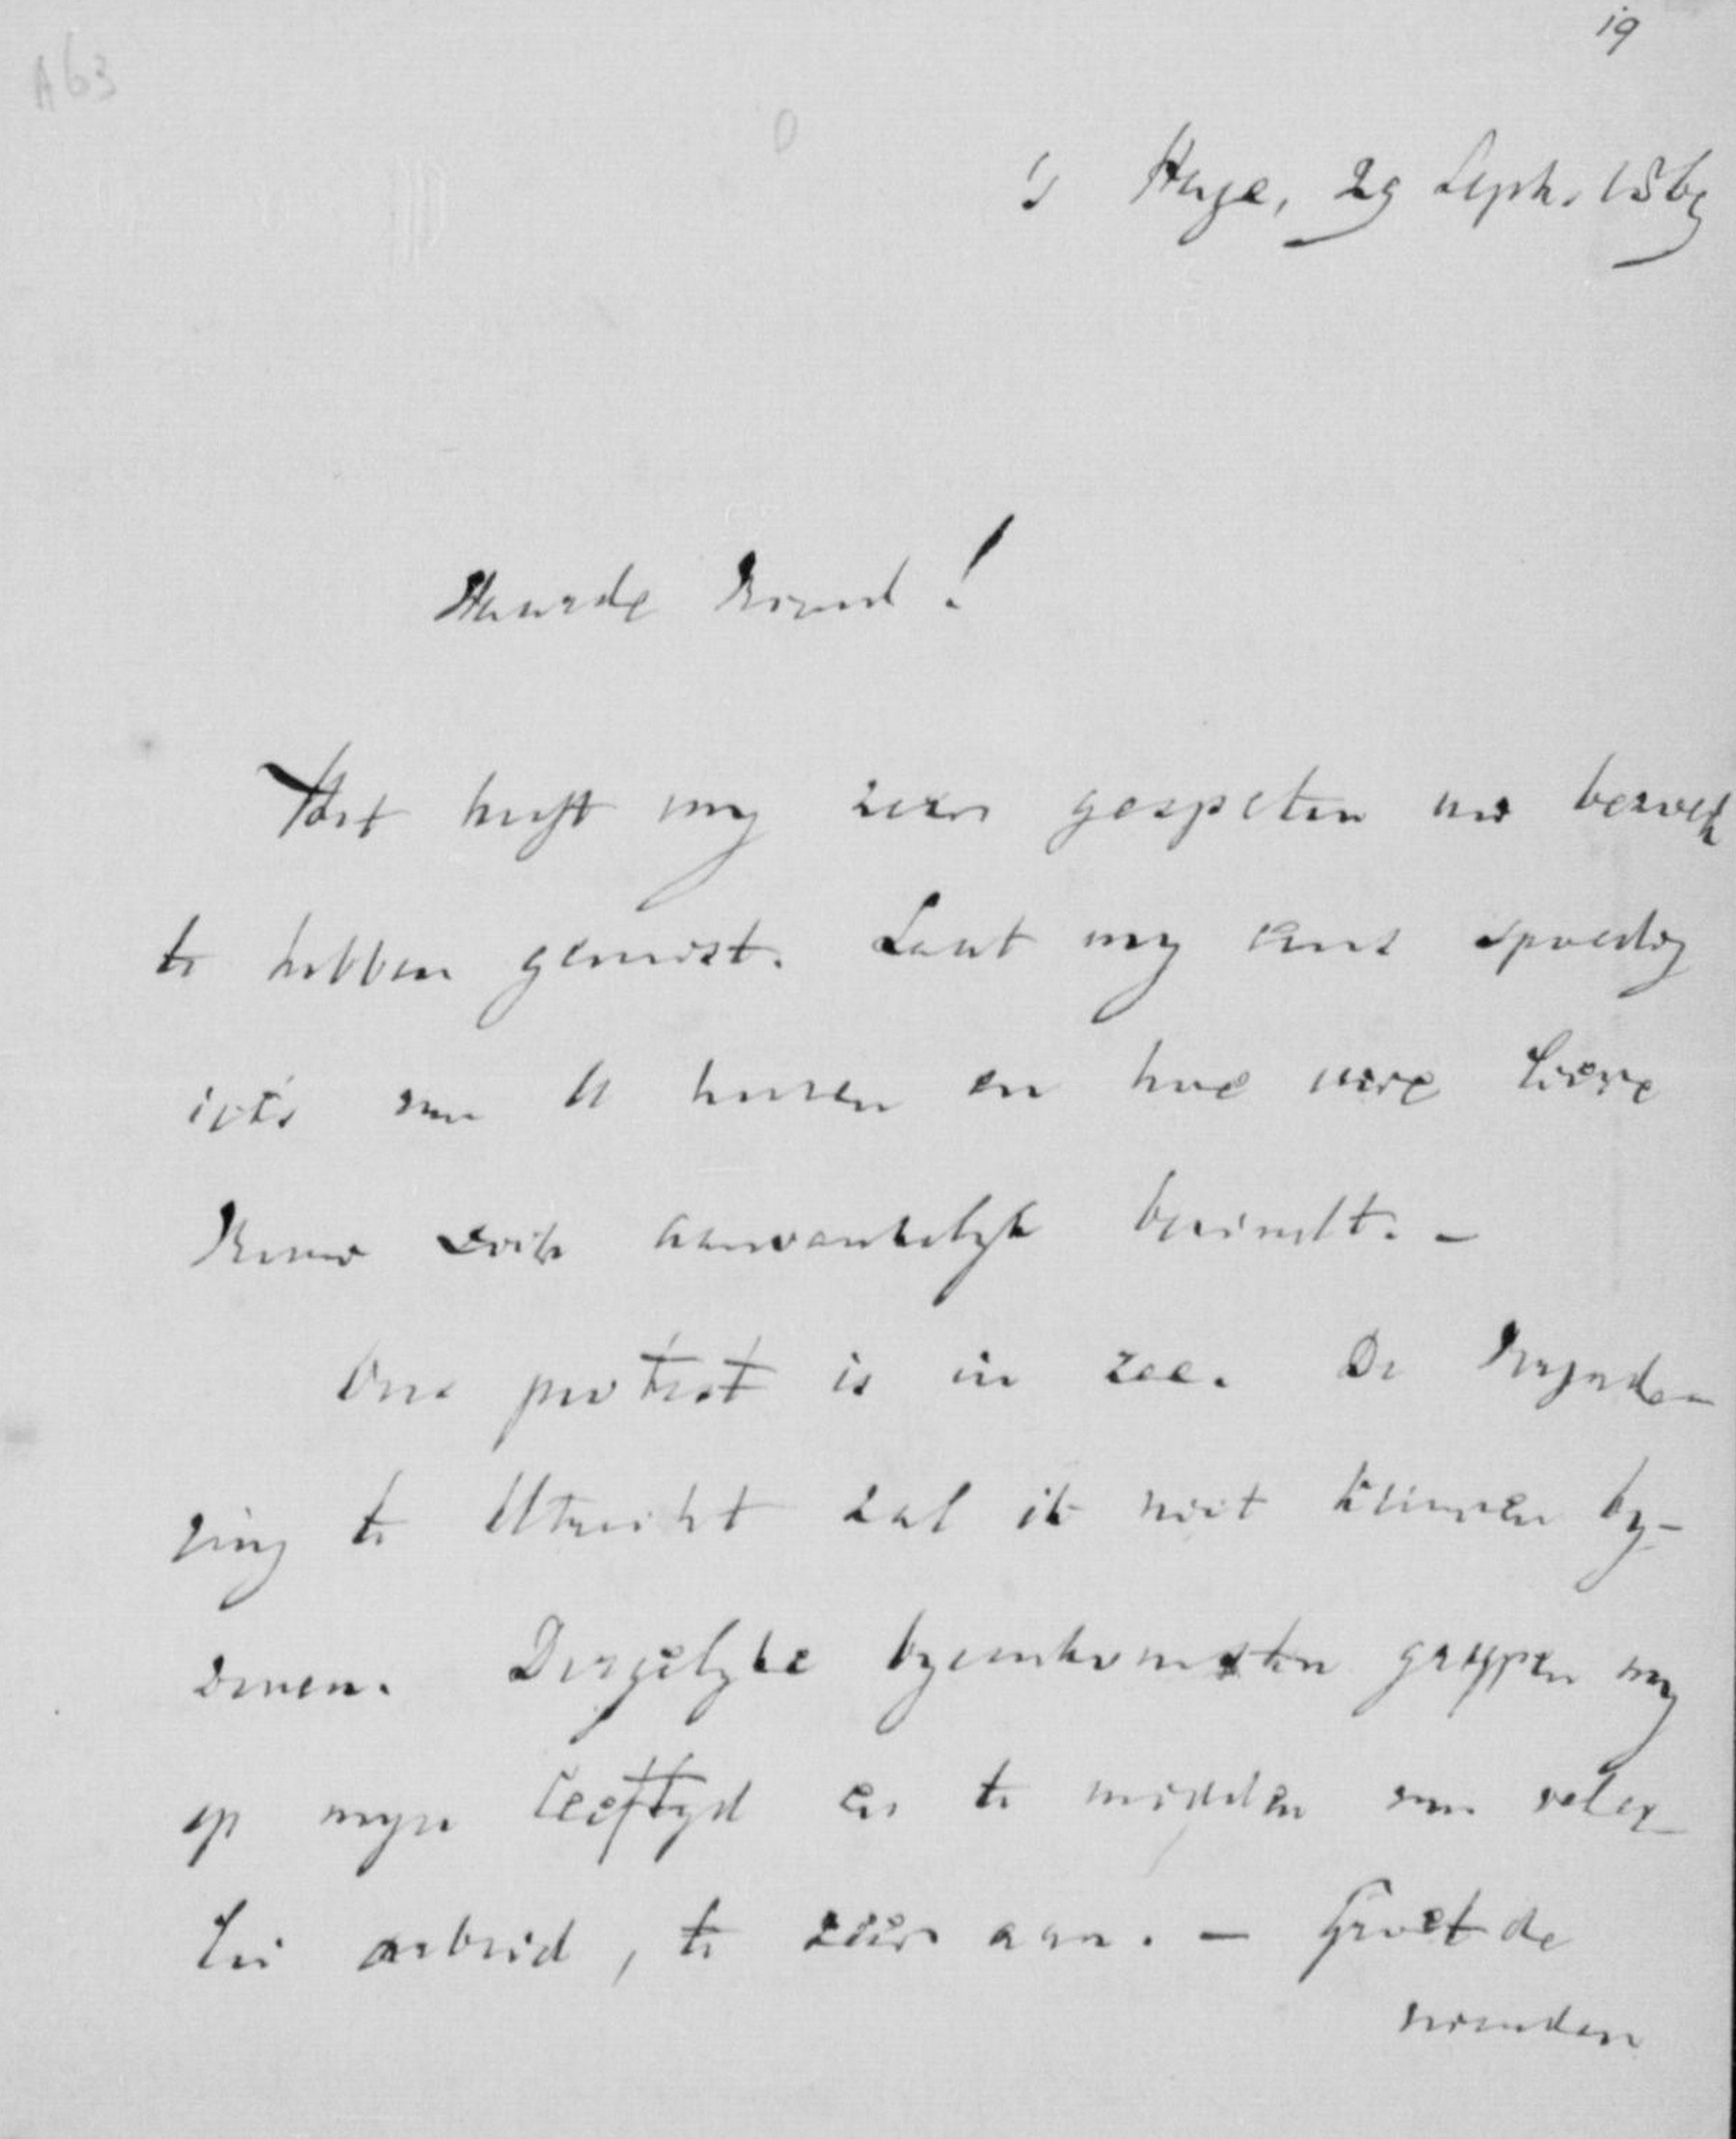 19
A63
's Hage, 29 Sept. 1869
Waarde Vriend!
Het heeft my zeer gespeten uw bezoek
te hebben gemist. Laat my eens spoedig
iets van U hooren en hoe uwe lieve
Vrouw zich aanvankelyk bevindt. -
Ons protest is in zee. De Vergade-
ring te Utrecht zal ik niet kunnen by-
wonen. Dergelyke byeenkomsten grypen my
op myn leeftyd en te midden van veler-
lei arbeid, te zeer aan. - Groet de
vrienden